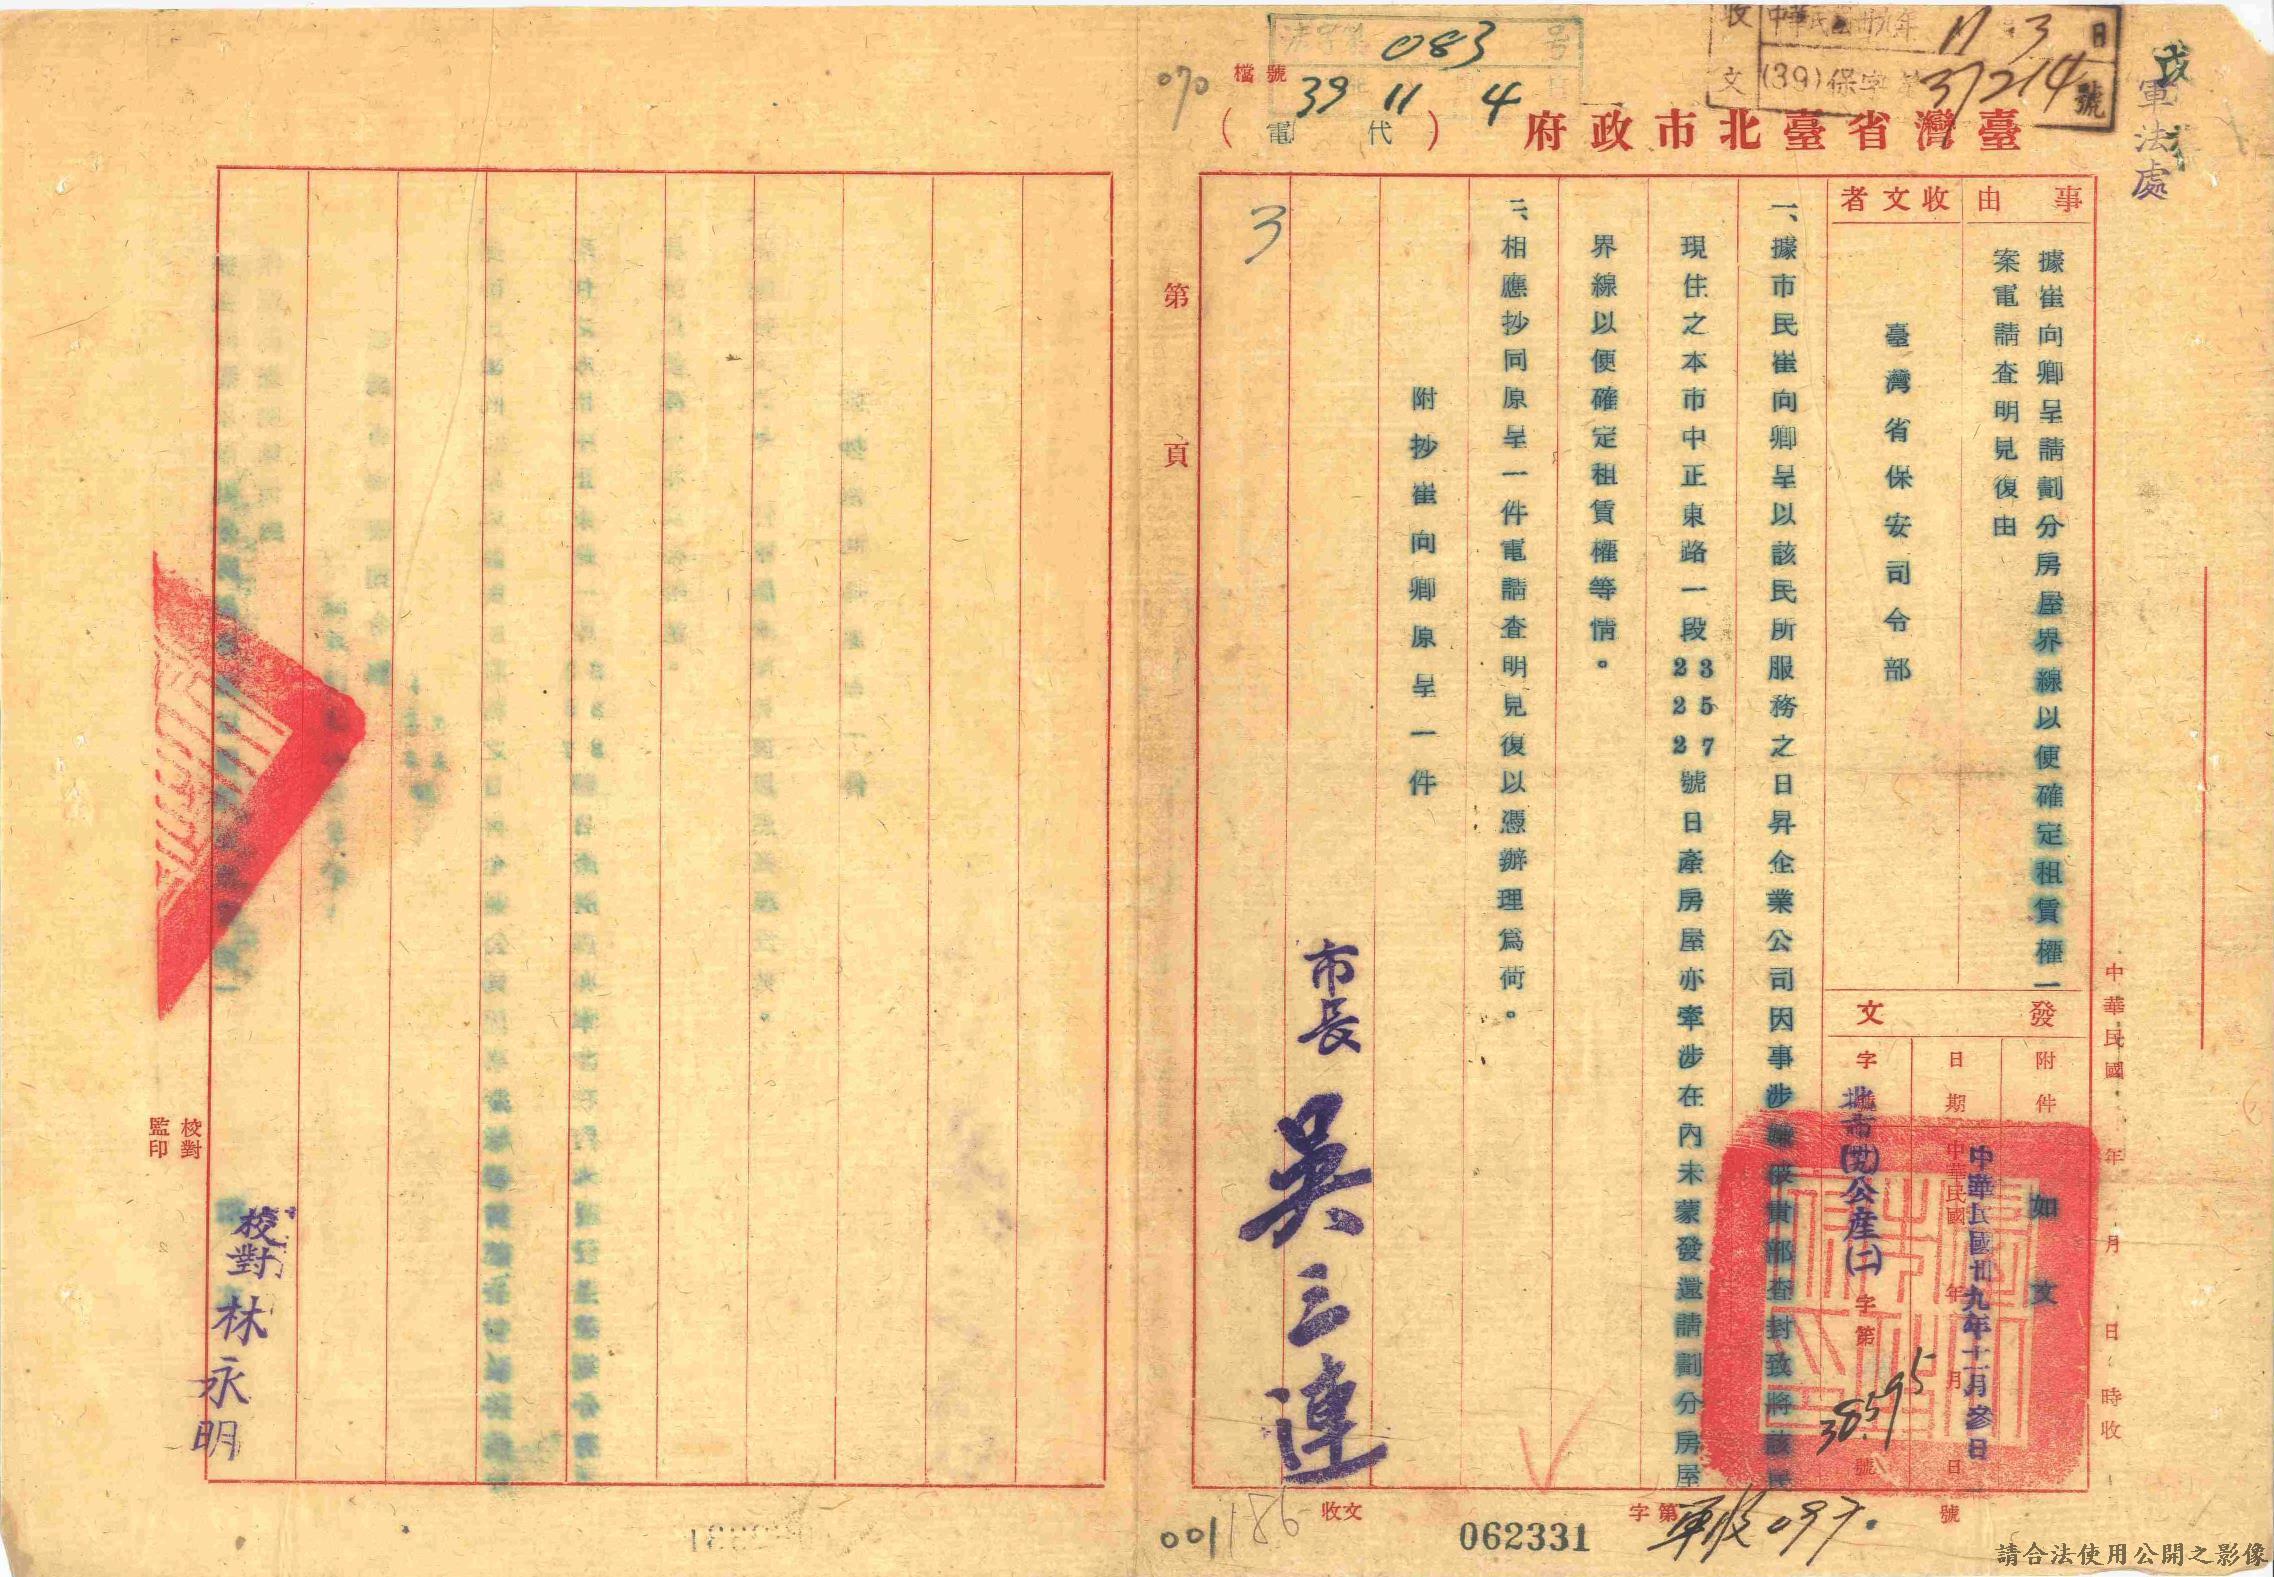 軍法處
收文
中華民國卅九年11月3日
(39)保字第37214號
法字第083号
39 11 4
070
檔號
臺灣省臺北市政府(代電)
事由
據崔向卿呈請劃分房屋界線以便確定租賃權一
案電請查明見復由
收文者
臺灣省保安司令部
發文
附件
如文
日期
中華民國 年 月 日
中華民國卅九年十一月參日
字號
北市(卅九)公產(二)字第38595號
一、據市民崔向卿呈以該民所服務之日昇企業公司因事涉嫌被貴部查封致將該民
現住之本市中正東路一段23 25 27號日產房屋亦牽涉在內未蒙發還請劃分房屋
界線以便確定租賃權等情。
二、相應抄同原呈一件電請查明見復以憑辦理為荷。
附抄崔向卿原呈一件
市長 吳三連
3
中華民國 年 月 日 時收
收文
字第 號
062331
軍收097
001
186
第 頁
校對
監印
校對 林永明
請合法使用公開之影像